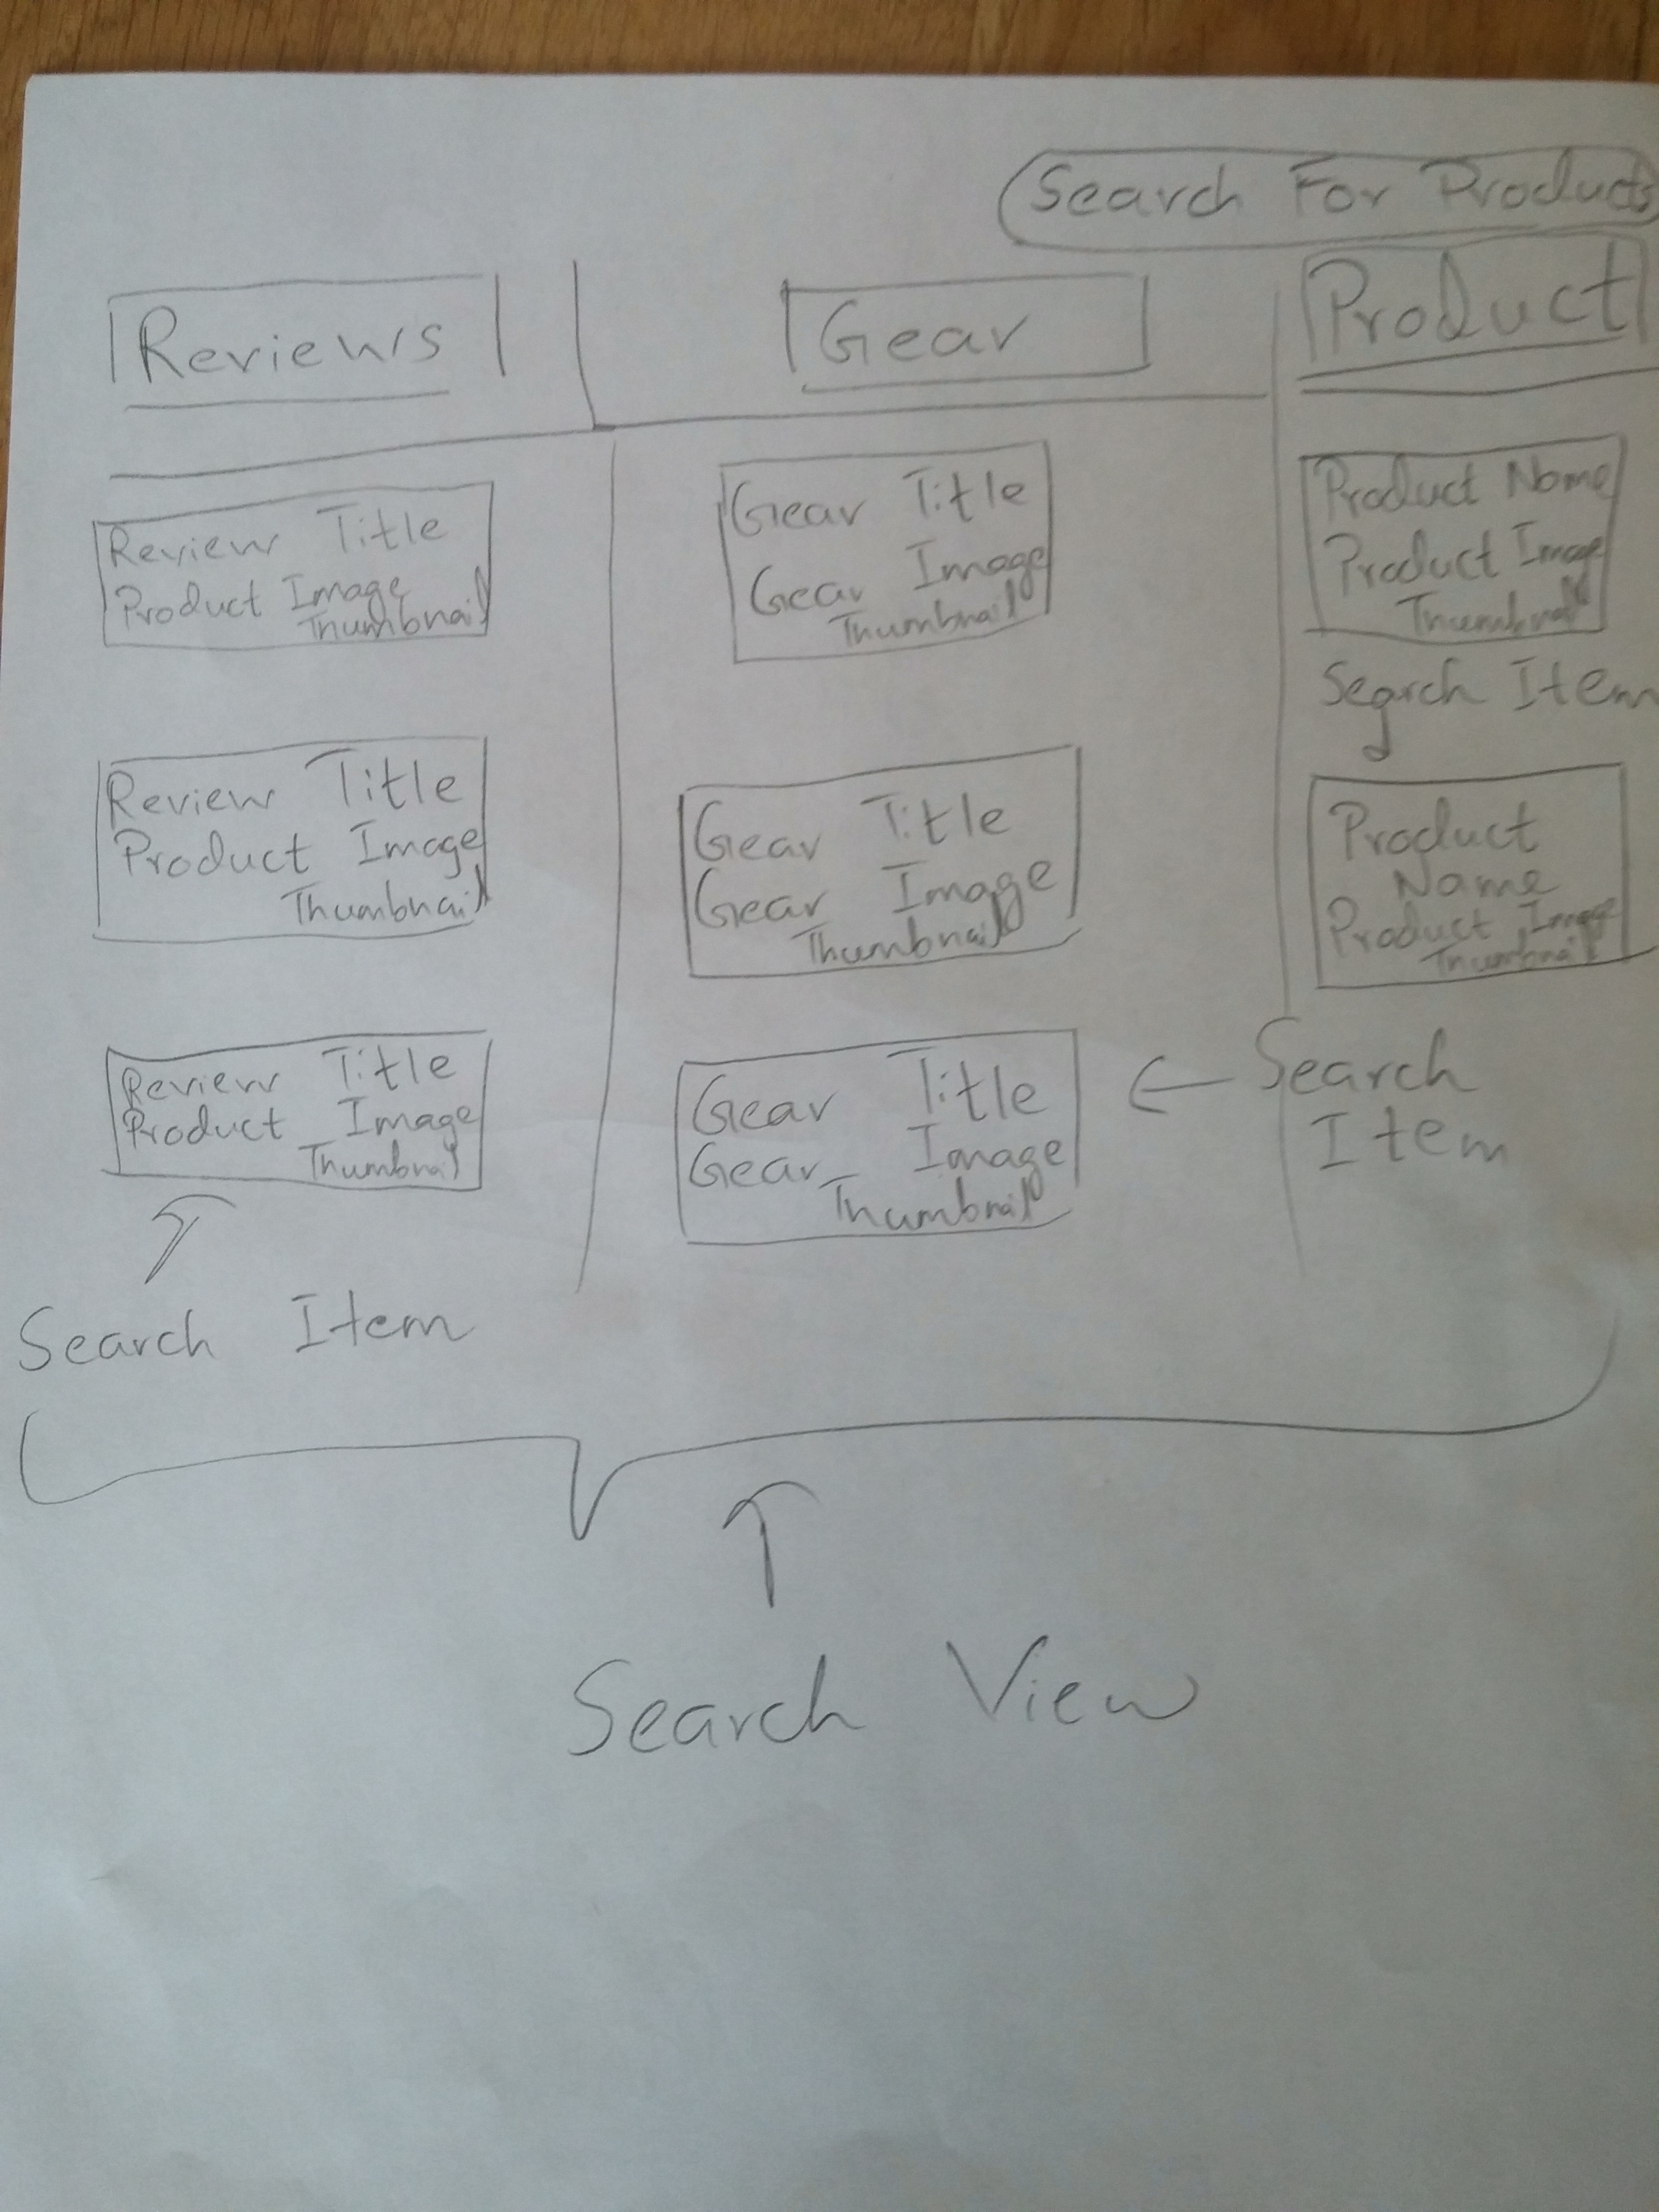 Search For Products
Reviews
Gear
Product
Review Title
Product Image
Thumbnail
Review Title
Product Image
Thumbnail
Review Title
Product Image
Thumbnail
Search Item
Gear Title
Gear Image
Thumbnail
Gear Title
Gear Image
Thumbnail
Gear Title
Gear Image
Thumbnail
Product Name
Product Image
Thumbnail
Search Item
Product
Name
Product Image
Thumbnail
Search
Item
Search View